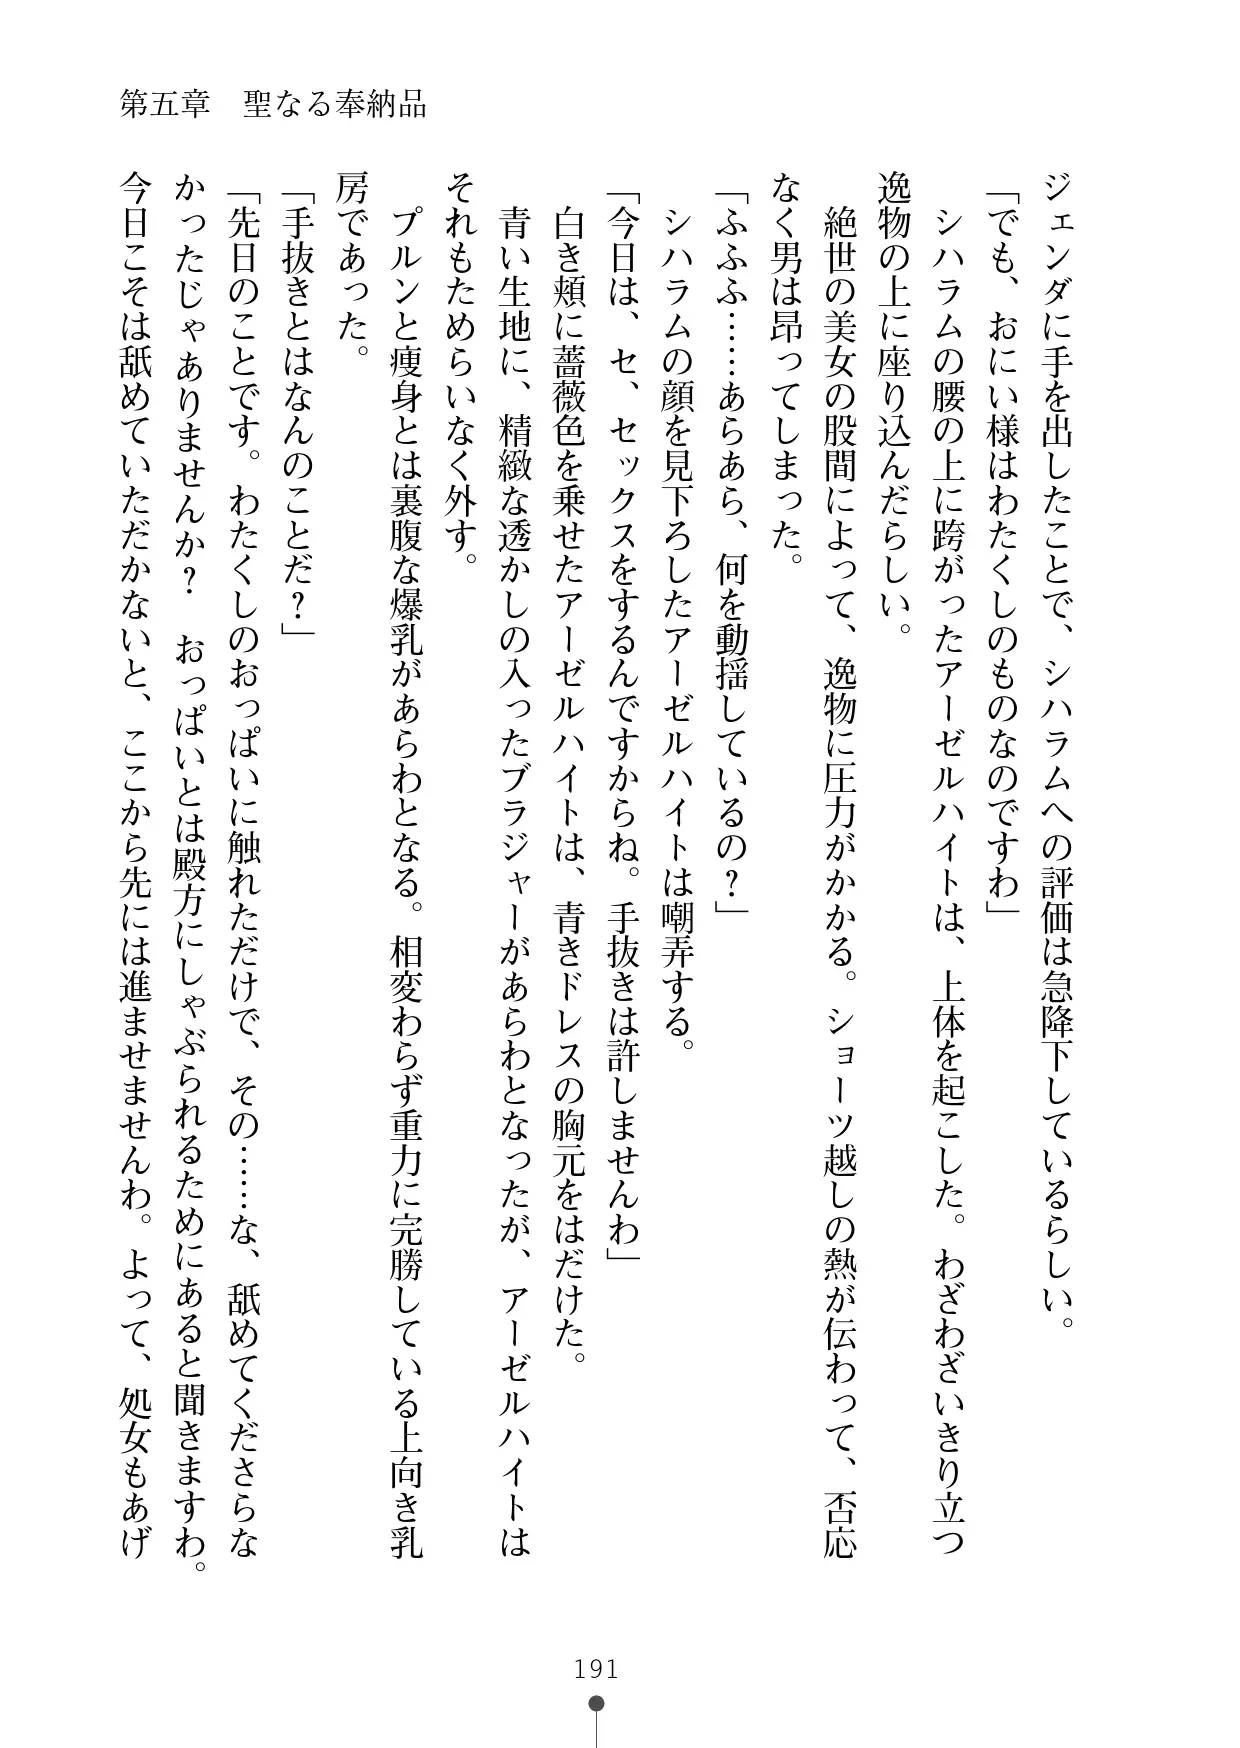 第五章　聖なる奉納品
ジェンダに手を出したことで、シハラムへの評価は急降下しているらしい。
「でも、おにい様はわたくしのものなのですわ」
　シハラムの腰の上に跨がったアーゼルハイトは、上体を起こした。わざわざいきり立つ
逸物の上に座り込んだらしい。
　絶世の美女の股間によって、逸物に圧力がかかる。ショーツ越しの熱が伝わって、否応
なく男は昂ってしまった。
「ふふふ……あらあら、何を動揺しているの？」
　シハラムの顔を見下ろしたアーゼルハイトは嘲弄する。
「今日は、セ、セックスをするんですからね。手抜きは許しませんわ」
　白き頬に薔薇色を乗せたアーゼルハイトは、青きドレスの胸元をはだけた。
　青い生地に、精緻な透かしの入ったブラジャーがあらわとなったが、アーゼルハイトは
それもためらいなく外す。
　プルンと痩身とは裏腹な爆乳があらわとなる。相変わらず重力に完勝している上向き乳
房であった。
「手抜きとはなんのことだ？」
「先日のことです。わたくしのおっぱいに触れただけで、その……な、舐めてくださらな
かったじゃありませんか？　おっぱいとは殿方にしゃぶられるためにあると聞きますわ。
今日こそは舐めていただかないと、ここから先には進ませませんわ。よって、処女もあげ
191